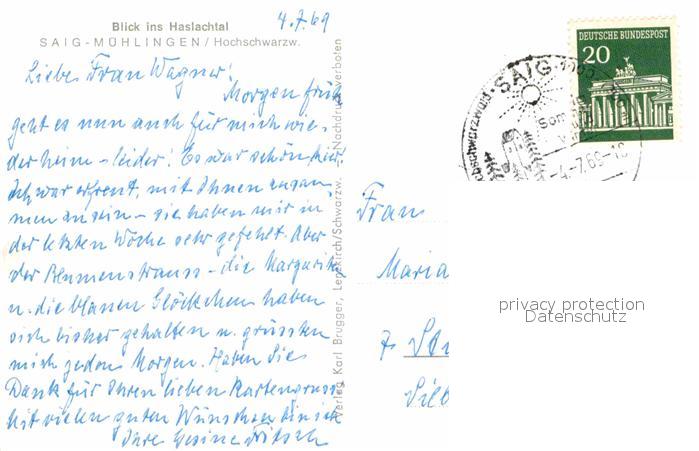 Blick ins Haslachtal
SAIG-MÜHLINGEN / Hochschwarzw.
4.7.69
Liebe Frau Wagner!
Morgen früh
geht es nun auch für mich wie-
der heim – leider! Es war schön hier.
Ich war erfreut, mit Ihnen zusam-
men zu sein – sie haben mir in
der letzten Woche sehr gefehlt. Aber
der Blumenstrauss – die Margariten
u. die blauen Glöckchen haben
sich bisher gehalten u. grüssten
mich jeden Morgen. Haben Sie
Dank für Ihren lieben Kartengruss
Mit vielen guten Wünschen bin ich
Ihre Gesine Fritsch
Verlag Karl Brugger, Lenzkirch/Schwarzw. - Nachdruck verboten
DEUTSCHE BUNDESPOST
20
SAIG
Hochschwarzwald
-4.-7.69-18
Frau
Maria
7
privacy protection
Datenschutz